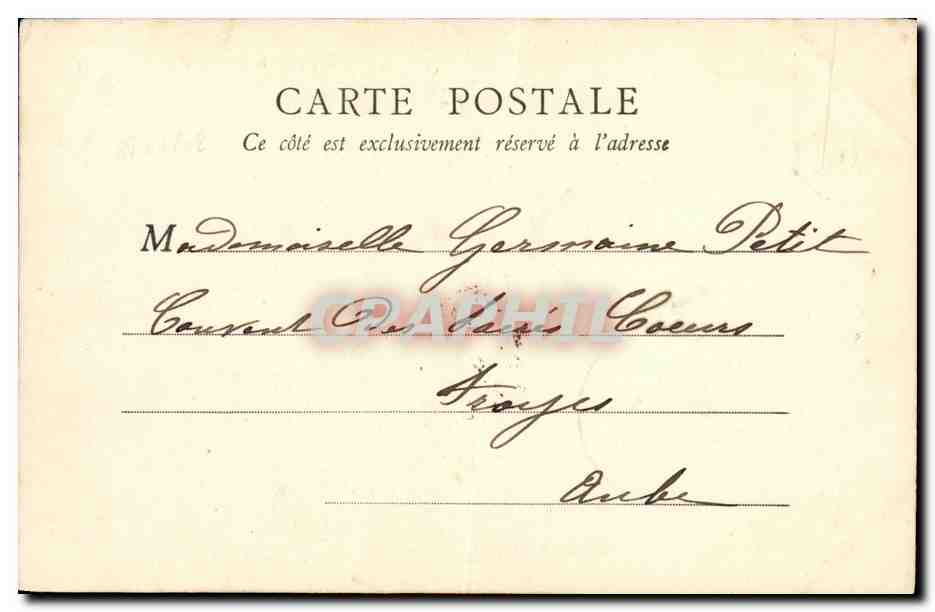 CARTE POSTALE
Ce côté est exclusivement réservé à l'adresse
Mademoiselle Germaine Petit
Couvent Des Sacrés Coeurs
CRAPHIL
Troyes
Aube